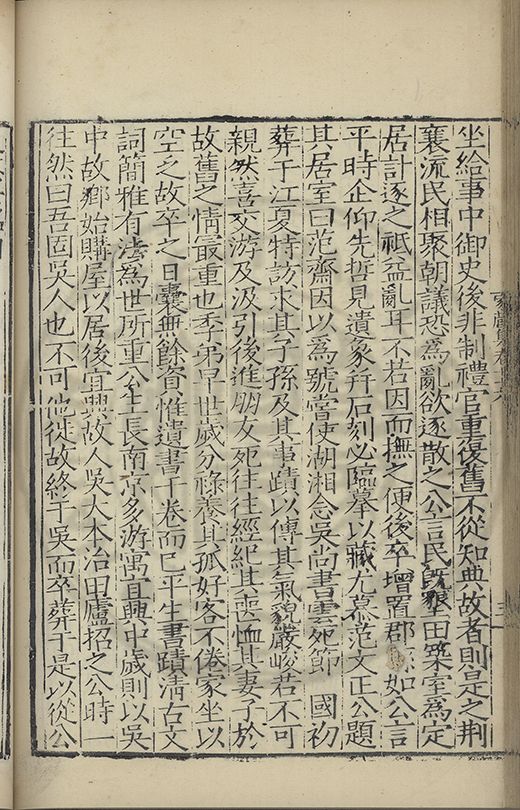 坐給事中御史後非制禮官重復舊不從知典故者則是之荆
襄流民相聚朝議恐為亂欲逐散之公言民既墾田築室為定
居計逐之祗益亂耳不若因而撫之便後卒增置郡縣如公言
平時企仰先哲見遺象并石刻必臨摹以藏尤慕范文正公題
其居室曰范齋因以為號嘗使湖湘念吳尚書雲死節 國初
葬于江夏特訪求其子孫及其事蹟以傳其氣貌嚴峻若不可
親然喜交游及汲引後進朋友死往往經紀其喪恤其妻子於
故舊之情最重也季弟早世歲分祿養其孤好客不倦家坐以
空之故卒之日囊無餘資惟遺書千卷而已平生書蹟清古文
詞簡雅有法為世所重公生長南京多游寓宜興中歲則以吳
中故鄉始購屋以居後宜興故人吳大本治田廬招之公時一
往然曰吾固吳人也不可他徙故終于吳而卒葬于是以從公